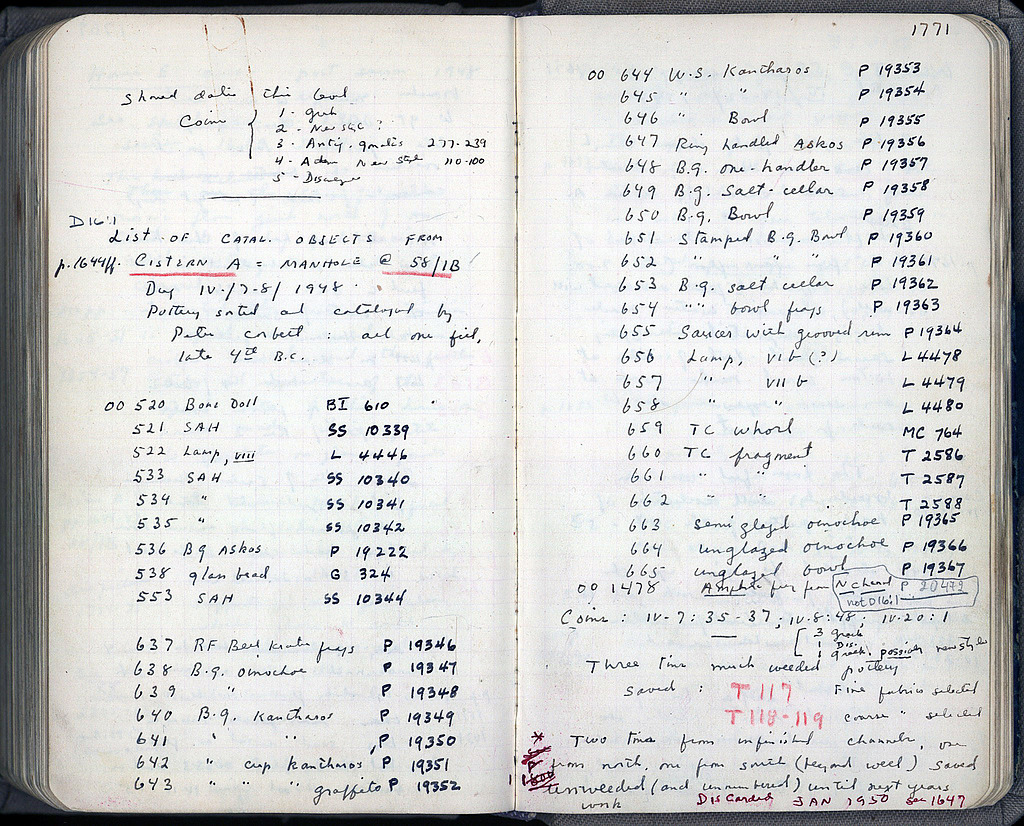 Shows dates this level.
Coins { 1 - Greek
2 - New style ?
3 - Antig. gonatas 277-239
4 - Athen New Style 110-100
5 -
D 16:1
LIST OF CATAL. OBJECTS FROM
p.1644ff. CISTERN A = MANHOLE @ 58/IB
Dug IV-/7-8/ 1948
Pottery sorted and catalogued by
Peter Corbett : all one fill,
late 4th B.C.
OO 520 Bone Doll BI 610
521 SAH SS 10339
522 Lamp, VIII L 4446
533 SAH SS 10340
534 " SS 10341
535 " SS 10342
536 BG Askos P 19222
538 glass bead G 324
553 SAH SS 10344
637 RF Bell Krater frags P 19346
638 B.G. oinochoe P 19347
639 " P 19348
640 B.G. Kantharos P 19349
641 " " P 19350
642 " cup Kantharos P 19351
643 " " graffito P 19352
1771
OO 644 W.S. Kantharos P 19353
645 " " P 19354
646 " Bowl P 19355
647 Ring handled Askos P 19356
648 B.G. one-handler P 19357
649 B.G. Salt-cellar P 19358
650 B.G. Bowl P 19359
651 Stamped B.G. Bowl P 19360
652 " " " P 19361
653 B.G. salt cellar P 19362
654 " " bowl frags P 19363
655 Saucer with grooved rim P 19364
656 Lamp, VI b (?) L 4478
657 " VII b L 4479
658 " " L 4480
659 TC whorl MC 764
660 TC fragment T 2586
661 " " T 2587
662 " " T 2588
663 semi glazed oinochoe P 19365
664 unglazed oinochoe P 19366
665 unglazed bowl P 19367
OO 1478 P 20472
not D16:1
Coins : IV-7: 35-37; IV-8: 48; IV-20: 1
[ 3 Greek
1 Dis.
1 Greek, possibly new style
Three tins much weeded pottery
saved : T 117 Fine fabrics selected
T 118-119 coarse " selected
* Two tins from unfinished channels, one
from north, one from south (beyond well) saved
unweeded (and unnumbered) until next years
work Discarded JAN 1950 See 1647